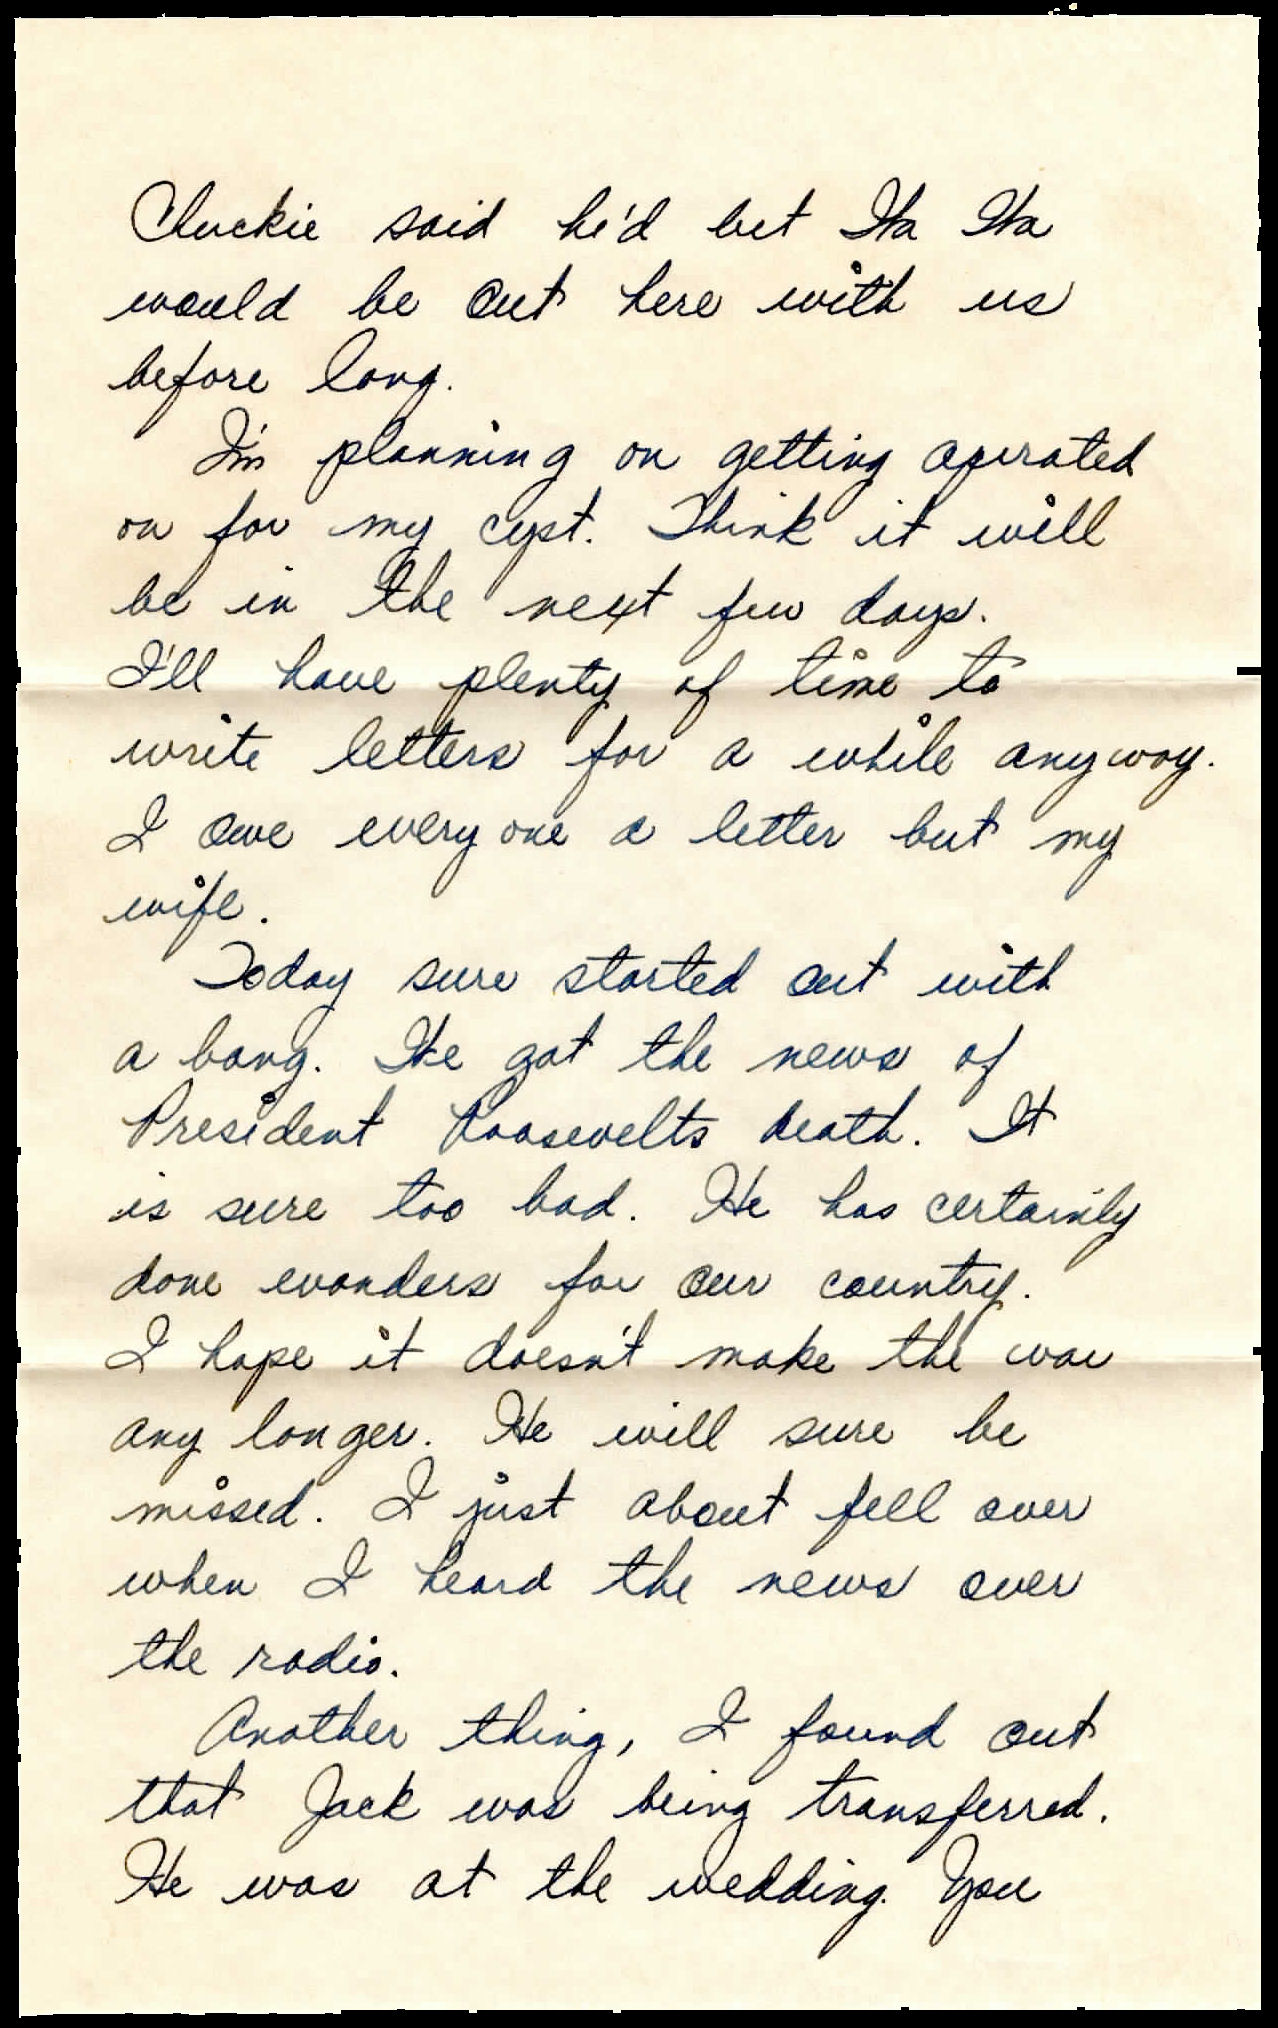 Chuckie said he'd bet Ha Ha
would be out here with us
before long.
I'm planning on getting operated
on for my cyst. Think it will
be in the next few days.
I'll have plenty of time to
write letters for a while anyway.
I owe everyone a letter but my
wife.
Today sure started out with
a bang. He got the news of
President Roosevelts death. It
is sure too bad. He has certainly
done wonders for our country.
I hope it doesn't make the war
any longer. He will sure be
missed. I just about fell over
when I heard the news over
the radio.
Another thing, I found out
that Jack was being transferred.
He was at the wedding. You